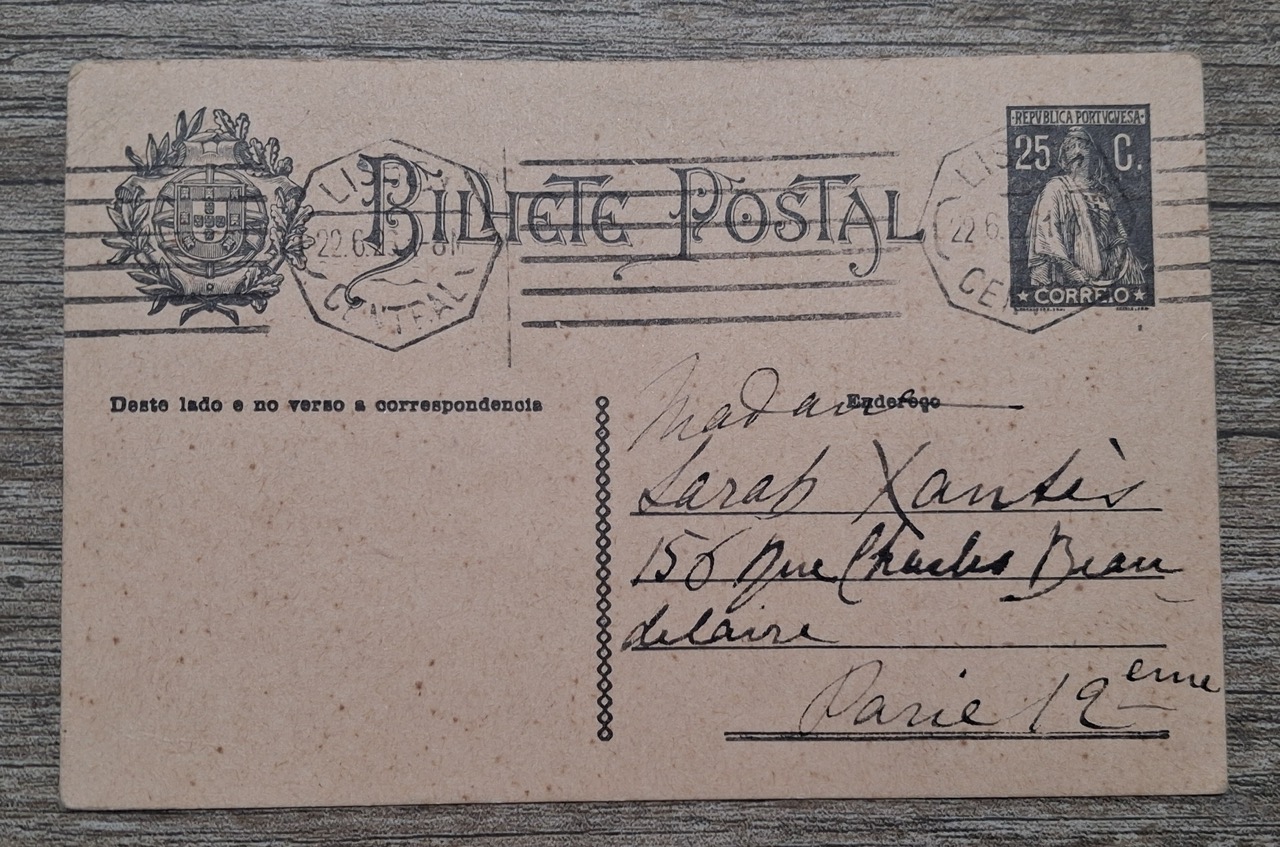 REPVBLICA PORTVGVESA
25 C.
CORREIO
BILHETE POSTAL
LIS
22.6.
CENTRAL
LIS
22.6.
CE
Deste lado e no verso a correspondencia
Endereço
Madame
Sarah Xantès
156 Rue Charles Beau
delaire
Paris 12eme